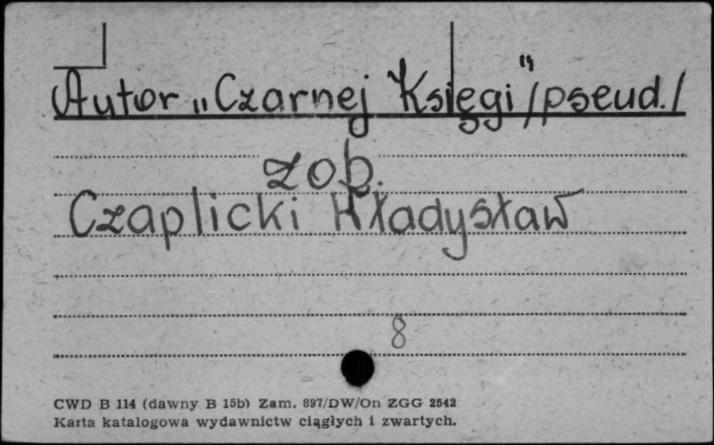 Autor „Czarnej Księgi” /pseud./
zob.
Czaplicki Władysław
8
CWD B 114 (dawny B 15b) Zam. 897/DW/On ZGG 2542
Karta katalogowa wydawnictw ciągłych i zwartych.